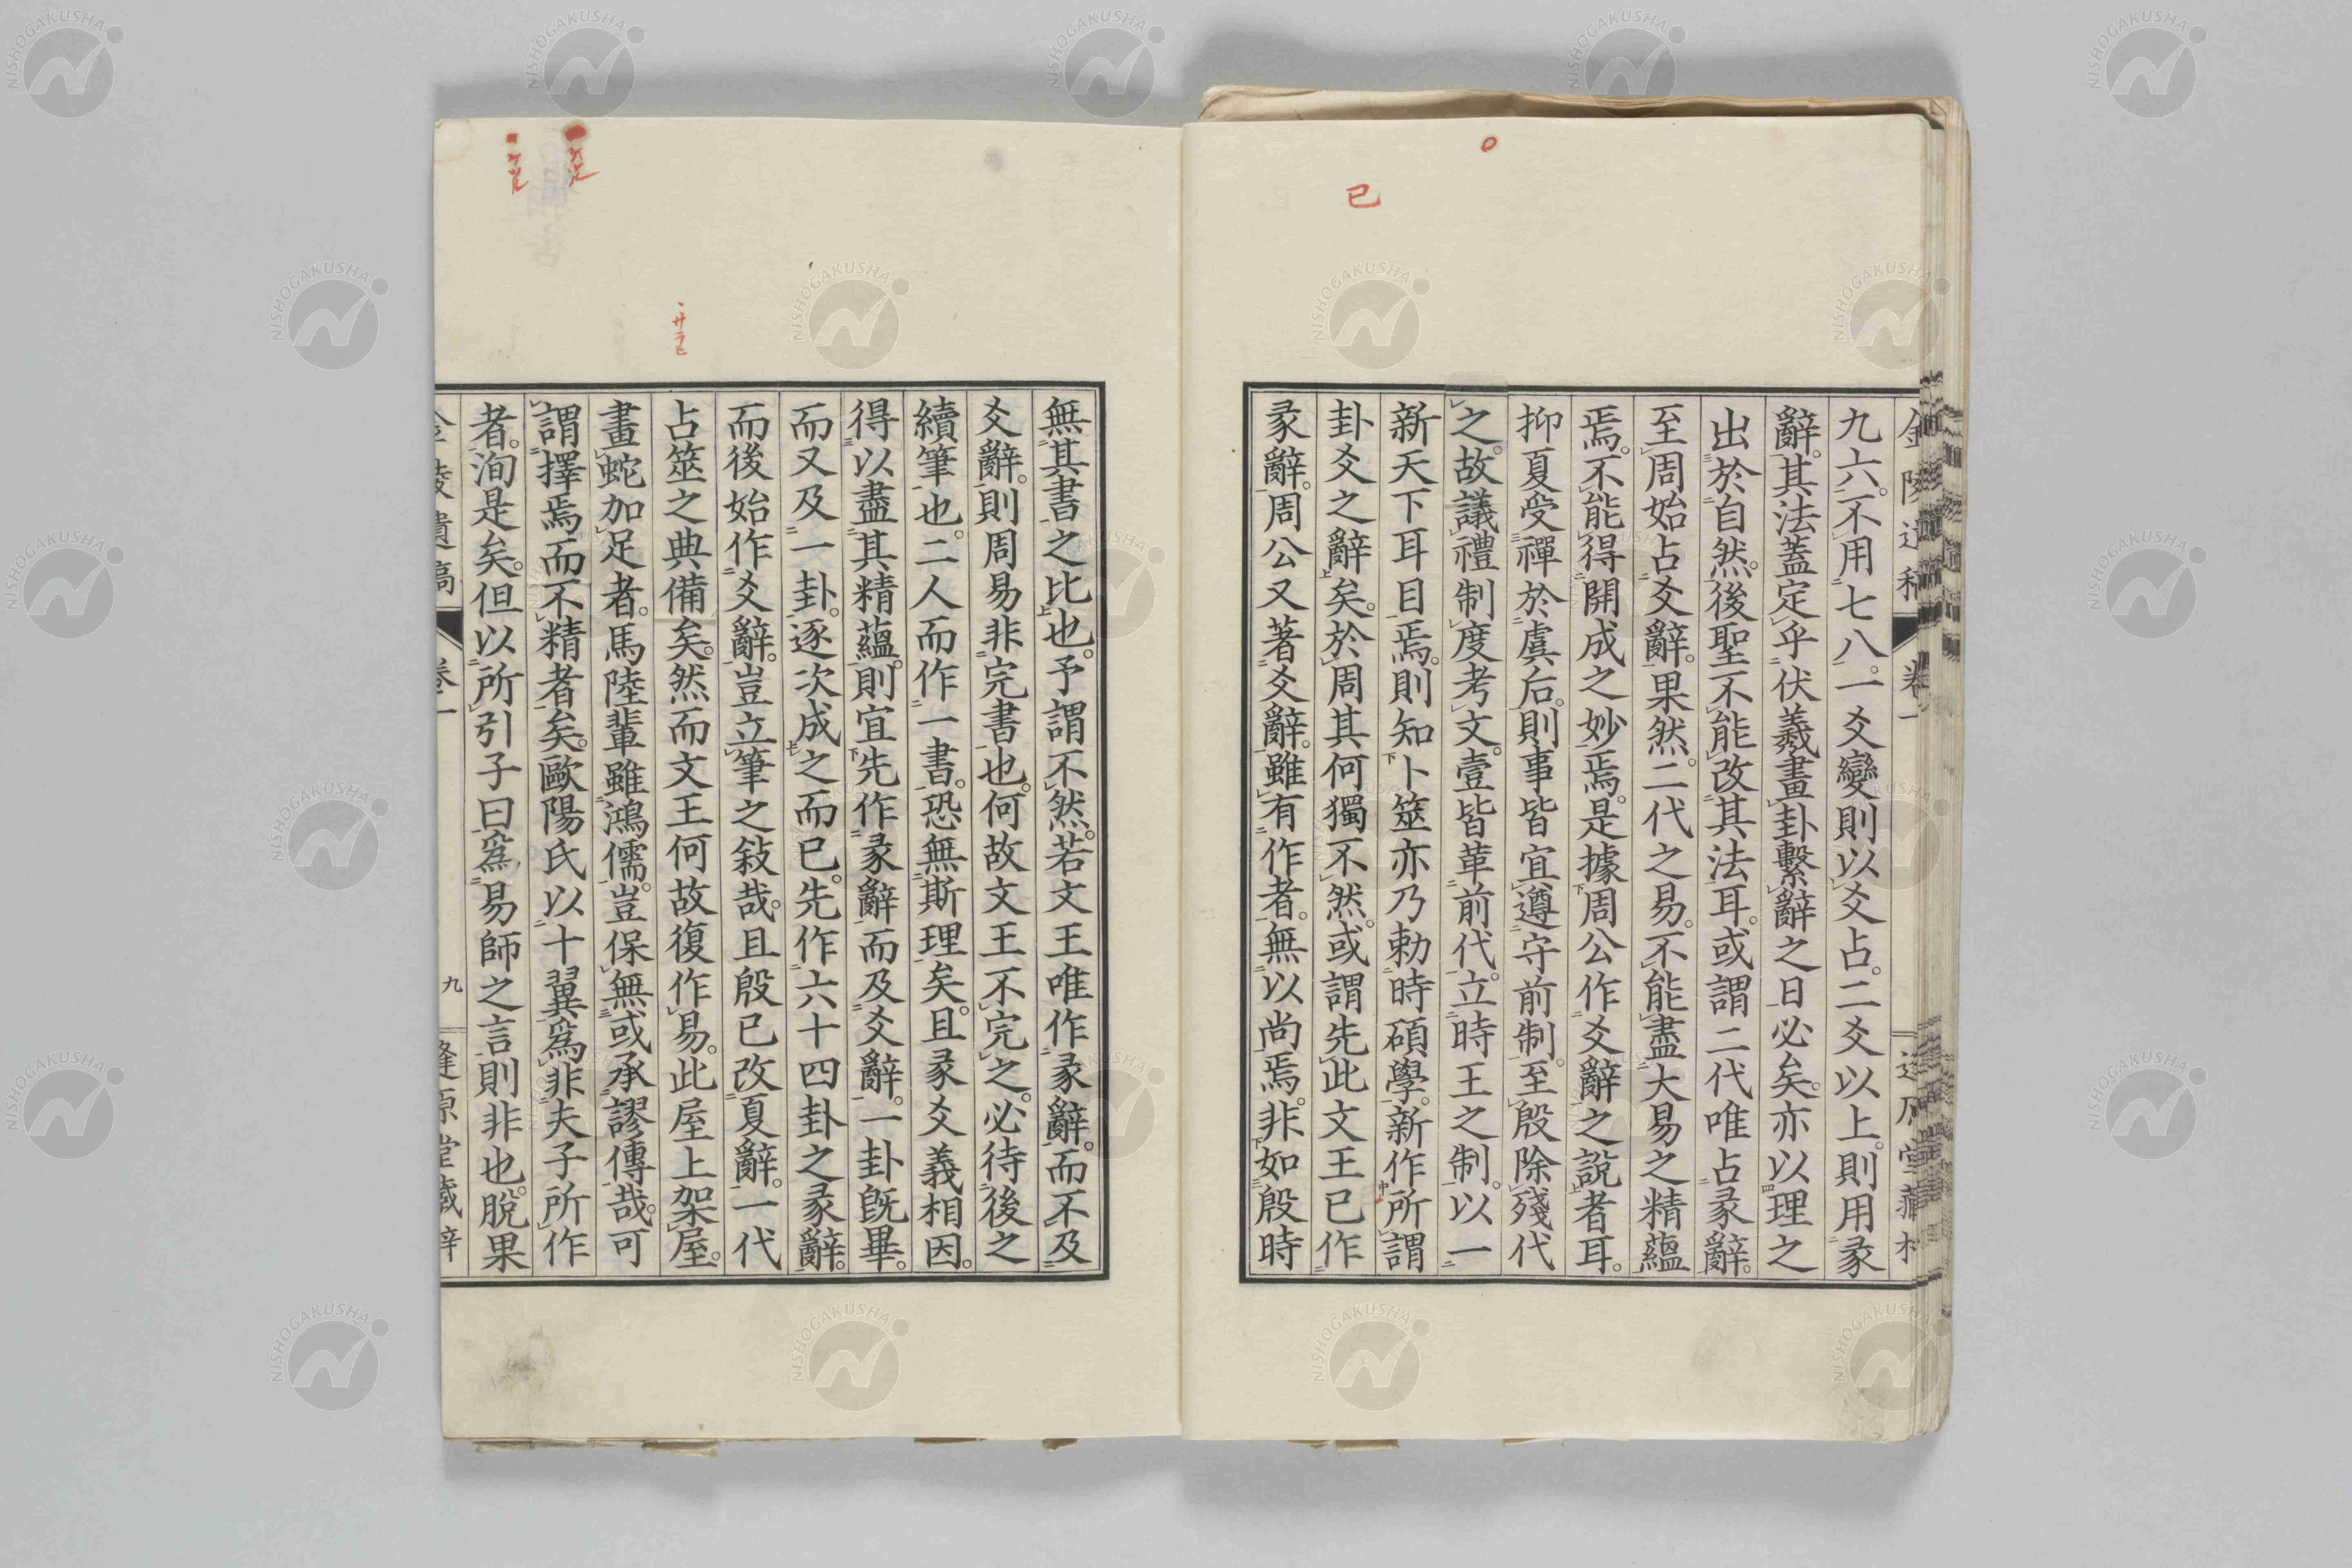 九六。不用七八。一爻變則以爻占。二爻以上。則用彖
辭。其法蓋定乎伏羲畫卦繫辭之日必矣。亦以理之
出於自然。後聖不能改其法耳。或謂二代唯占彖辭。
至周始占爻辭。果然。二代之易。不能盡大易之精蘊
焉。不能得開成之妙焉。是據周公作爻辭之說者耳。
抑夏受禪於虞后。則事皆宜遵守前制。至殷除殘代
之。故議禮制度考文。壹皆革前代。立時王之制。以一
新天下耳目焉。則知卜筮亦乃勅時碩學。新作所謂
卦爻之辭矣。於周其何獨不然。或謂先此文王已作
彖辭。周公又著爻辭。雖有作者。無以尚焉。非如殷時
無其書之比也。予謂不然。若文王唯作彖辭。而不及
爻辭。則周易非完書也。何故文王不完之。必待後之
續筆也。二人而作一書。恐無斯理矣。且彖爻義相因。
得以盡其精蘊。則宜先作彖辭而及爻辭。一卦既畢。
而又及一卦。逐次成之而已。先作六十四卦之彖辭。
而後始作爻辭。豈立筆之敍哉。且殷已改夏辭。一代
占筮之典備矣。然而文王何故復作易。此屋上架屋。
畫蛇加足者。馬陸輩雖鴻儒。豈保無或承謬傳哉。可
謂擇焉而不精者矣。歐陽氏以十翼爲非夫子所作
者。洵是矣。但以所引子曰爲易師之言則非也。脫果
卷一
九
已
NISHOGAKUSHA